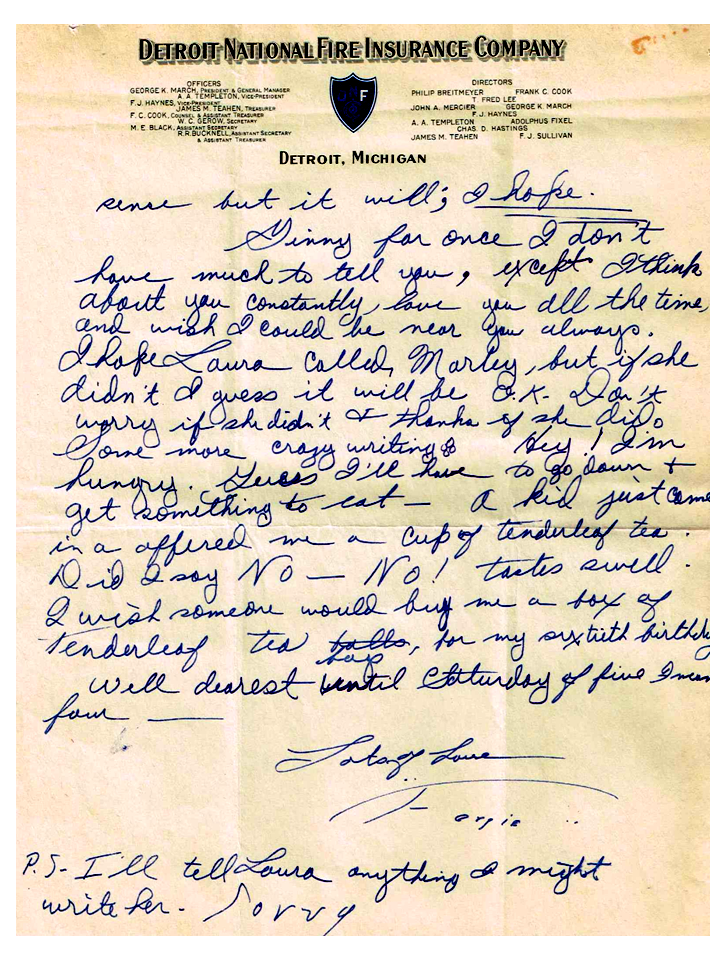 DETROIT NATIONAL FIRE INSURANCE COMPANY
OFFICERS
GEORGE K. MARCH, PRESIDENT & GENERAL MANAGER
A. A. TEMPLETON, VICE-PRESIDENT
F. J. HAYNES, VICE-PRESIDENT
JAMES M. TEAHEN, TREASURER
F. C. COOK, COUNSEL & ASSISTANT TREASURER
W. C. GEROW, SECRETARY
M. E. BLACK, ASSISTANT SECRETARY
R. R. BUCKNELL, ASSISTANT SECRETARY
& ASSISTANT TREASURER
DIRECTORS
PHILIP BREITMEYER FRANK C. COOK
T. FRED LEE
JOHN A. MERCIER GEORGE K. MARCH
F. J. HAYNES
A. A. TEMPLETON ADOLPHUS FIXEL
CHAS. D. HASTINGS
JAMES M. TEAHEN F. J. SULLIVAN
DETROIT, MICHIGAN
sense but it will; I hope.
Ginny for once I don't
have much to tell you, except I think
about you constantly, love you all the time,
and wish I could be near you always.
I hope Laura called, Marley, but if she
didn't I guess it will be O.K. Don't
worry if she didn't & thanks if she did.
Some more crazy writing Hey! I'm
hungry. Guess I'll have to go down &
get something to eat — A kid just came
in a offered me a cup of tenderleaf tea.
Did I say NO — NO! tastes swell.
I wish someone would buy me a box of
tenderleaf tea balls, for my sixtieth birthday
bags
Well dearest until Saturday at five I mean
four —
Lots of Love
P.S- I'll tell Laura anything I might
write her. Sorry